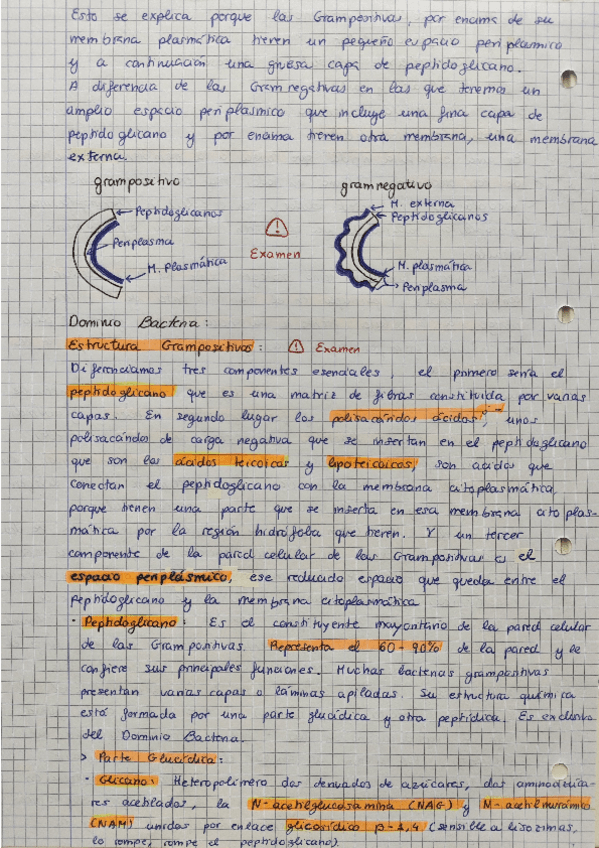 Esto se explica porque las Grampositivas, por encima de su
membrana plasmática tienen un pequeño espacio periplásmico
y a continuación una gruesa capa de peptidoglicano.
A diferencia de las Gramnegativas en las que tenemos un
amplio espacio periplásmico que incluye una fina capa de
peptidoglicano y por encima tienen otra membrana, una membrana
externa.
grampositivo
gramnegativo
Peptidoglicanos
Periplasma
M. Plasmática
Examen
M. externa
Peptidoglicanos
M. plasmática
Periplasma
Dominio Bacteria:
Estructura Grampositivas: Examen
Diferenciamos tres componentes esenciales, el primero sería el
peptidoglicano que es una matriz de fibras constituida por varias
capas. En segundo lugar los polisacáridos ácidos, unos
polisacáridos de carga negativa que se insertan en el peptidoglicano
que son los ácidos teicoicos y lipoteicoicos, son ácidos que
conectan el peptidoglicano con la membrana citoplasmática,
porque tienen una parte que se inserta en esa membrana citoplas-
mática por la región hidrófoba que tienen. Y un tercer
componente de la pared celular de las Grampositivas es el
espacio periplásmico, ese reducido espacio que queda entre el
peptidoglicano y la membrana citoplasmática
· Peptidoglicano: Es el constituyente mayoritario de la pared celular
de las Grampositivas. Representa el 60-90% de la pared y le
confiere sus principales funciones. Muchas bacterias grampositivas
presentan varias capas o láminas apiladas. Su estructura química
está formada por una parte glucídica y otra peptídica. Es exclusivo
del Dominio Bacteria.
> Parte Glucídica:
· Glicano: Heteropolímero dos derivados de azúcares, dos aminoazúca-
res acetilados, la N-acetilglucosamina (NAG) y N-acetilmurámico
(NAM) unidos por enlace glicosídico β-1,4 (sensible a lisozimas,
lo rompe, rompe el peptidoglicano).